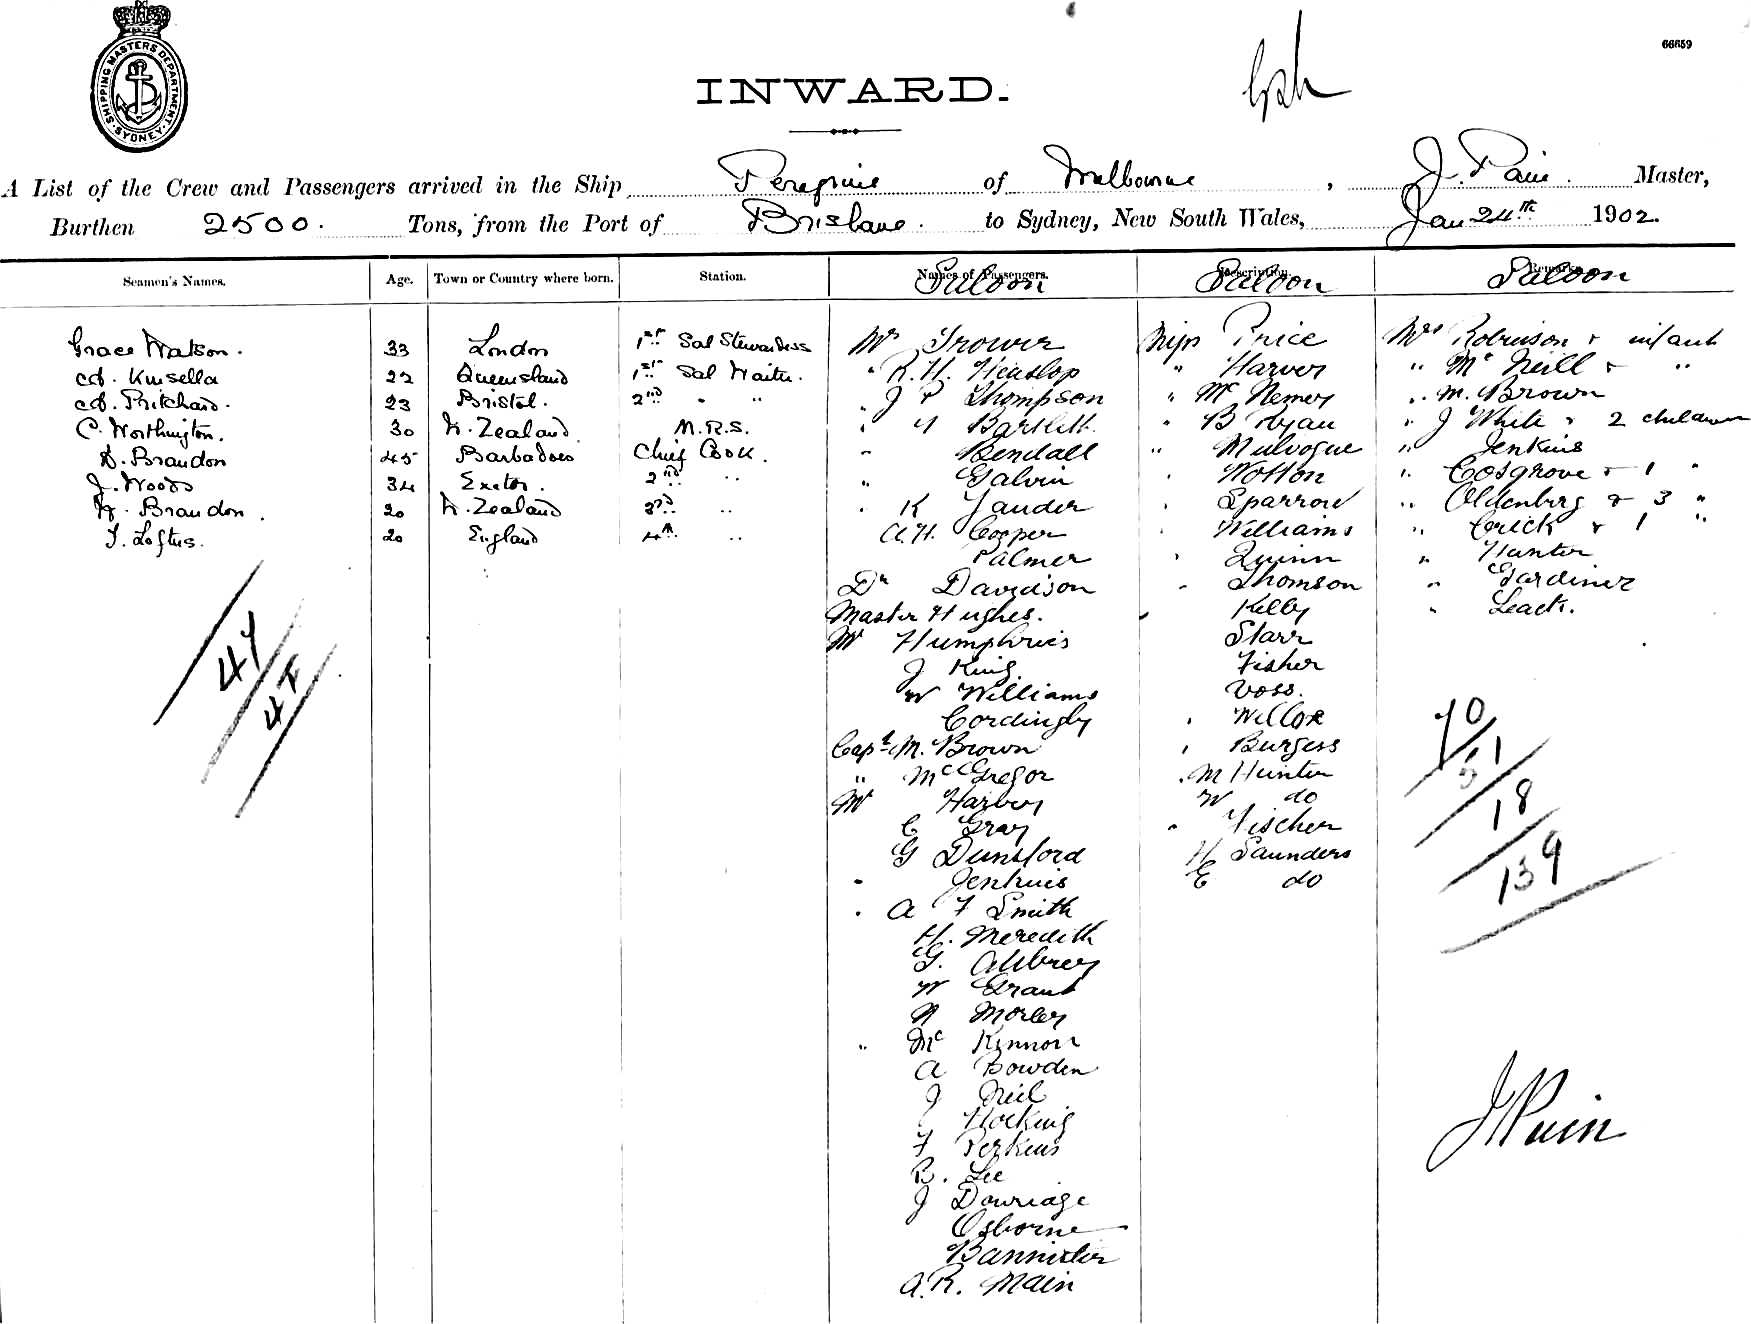 SHIPPING MASTERS DEPARTMENT. SYDNEY
66659
INWARD.
A List of the Crew and Passengers arrived in the Ship Peregrine of Melbourne, J. Pain. Master,
Burthen 2500. Tons, from the Port of Brisbane. to Sydney, New South Wales, Jan 24th 1902.
Seamen's Names. Age. Town or Country where born. Station. Names of Passengers. Description. Remarks
Saloon Saloon Saloon
Grace Watson. 33 London 1st Sal Stewardess Mr Trower Miss Price Mrs Robinson & infant
Kinsella 22 Queensland 1st Sal Waiter. " R. H. Henslop " Harver " Mc Neill & "
Pritchard. 23 Bristol. 2nd " " " J P Thompson " Mc Nemey " M. Brown
C. Worthington. 30 N. Zealand M.R.S. " Bartlett " B Ryan " J White & 2 children
D. Brandon 45 Barbadoes Chief Cook. " Bendall " Mulvogue " Jenkins
J. Woods 34 Exeter. 2nd " " Galvin Wotton " Cosgrove & 1 "
H. Brandon. 20 N. Zealand 3rd " " K Jander " Sparrow " Oldenberg & 3 "
T. Loftus. 20 England 4th " A. H. Cooper " Williams " Crick & 1 "
Palmer " Quinn " Hunter
Dr Davidson " Thomson " Gardiner
Master Hughes. " Kelly " Leach.
Mr Humphries Starr
J King Fisher
W Williams Voss.
Cordingly " Willox
Capt M. Brown " Burgess
" McGregor " M Hunter
Mr Harvey W do
C Gray " Fischer
G Dunsford H Saunders
" Jenkins E do
" A F Smith
H. Meredith
G. Aubrey
W Grant
N Morley
" Mc Kinnon
A Bowden
J Neil
Hocking
F Perkins
B. Lee
J Dowridge
Osborne
Bannister
A. R. Main
47
47
70
51
18
139
J Pain